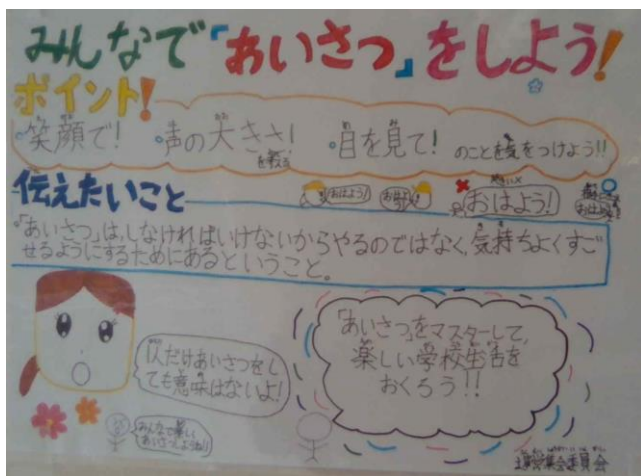 みんなで「あいさつ」をしよう!
ポイント!
笑顔で! 声の大きさ! 目を見て! のことを気をつけよう!!
伝えたいこと
おはよう!
おはよう!
「あいさつ」は、しなければいけないからやるのではなく、気持ちよくすご
せるようにするためにあるということ。
1人だけあいさつをし
ても意味はないよ!
みんなで楽しい
あいさつしようね!
「あいさつ」をマスターして、
楽しい学校生活を
おくろう!!